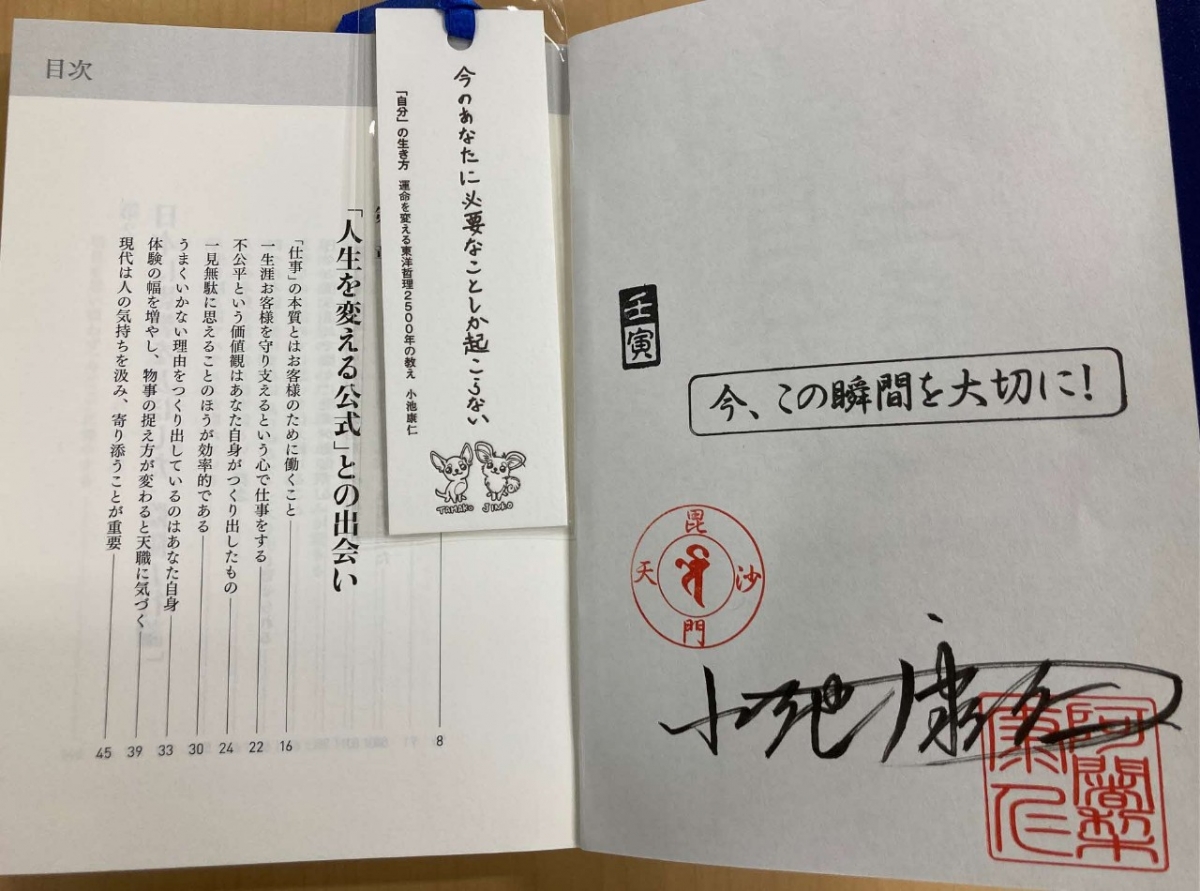 目次
「人生を変える公式」との出会い
8
「仕事」の本質とはお客様のために働くこと
16
一生涯お客様を守り支えるという心で仕事をする
22
不公平という価値観はあなた自身がつくり出したもの
24
一見無駄に思えることのほうが効率的である
30
うまくいかない理由をつくり出しているのはあなた自身
33
体験の幅を増やし、物事の捉え方が変わると天職に気づく
39
現代は人の気持ちを汲み、寄り添うことが重要
45
今のあなたに必要なことしか起こらない
「自分」の生き方 運命を変える東洋哲理2500年の教え 小池康仁
TAMAKO JIRO
壬寅
今、この瞬間を大切に!
毘沙門天
小池康仁
阿闍梨
康仁